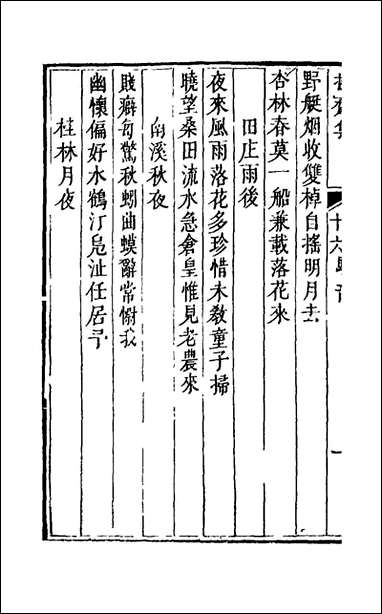 十六
一
野艇烟收雙棹自搖明月去
杏林春莫一船兼載落花來
田庄雨後
夜來風雨落花多珍惜未敎童子掃
曉望桑田流水急倉皇惟見老農來
南溪秋夜
賤癖每驚秋蚓曲蟆辭常惱我
幽懷偏好水鶴汀凫沚任居予
桂林月夜